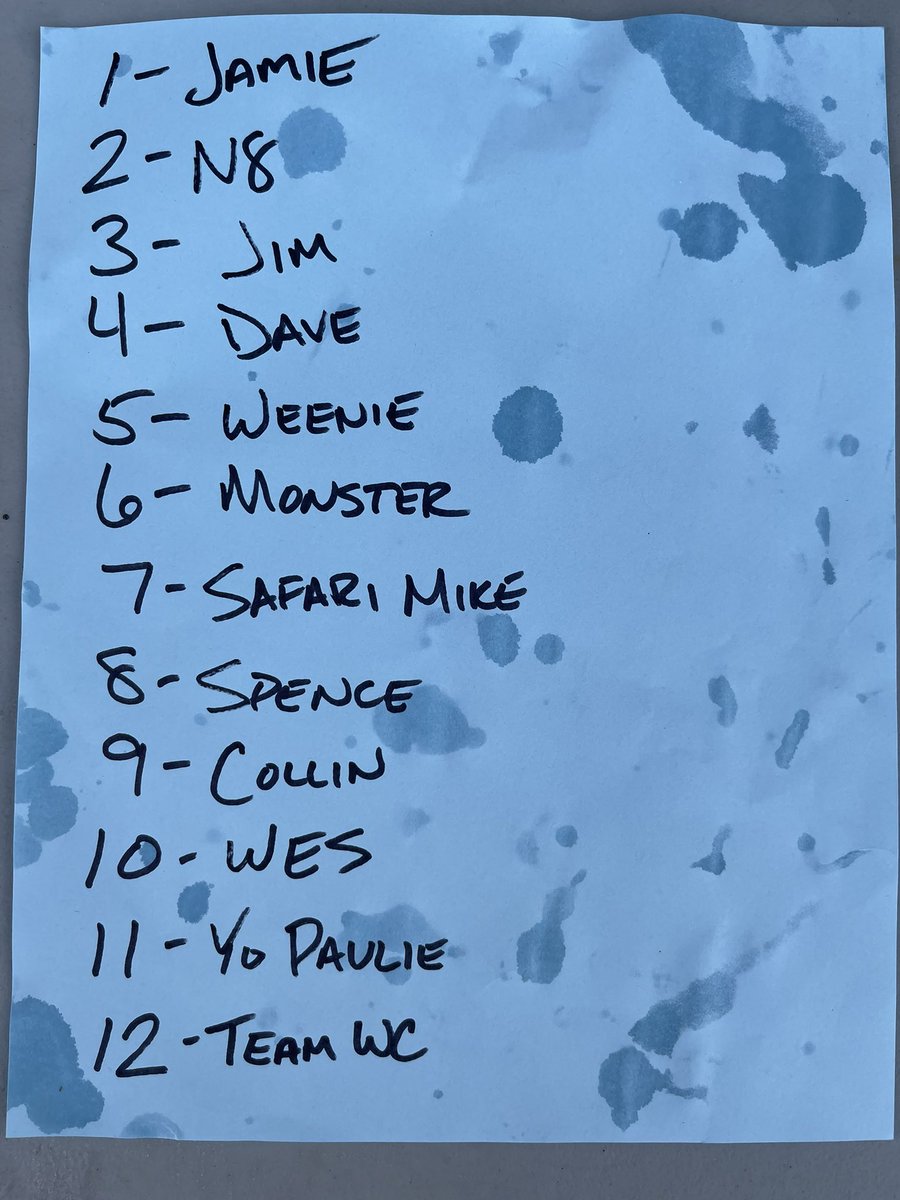 1- JAMIE
2- N8
3- JIM
4- DAVE
5- WEENIE
6- MONSTER
7- SAFARI MIKE
8- SPENCE
9- COLLIN
10- WES
11- YO PAULIE
12- TEAM WC